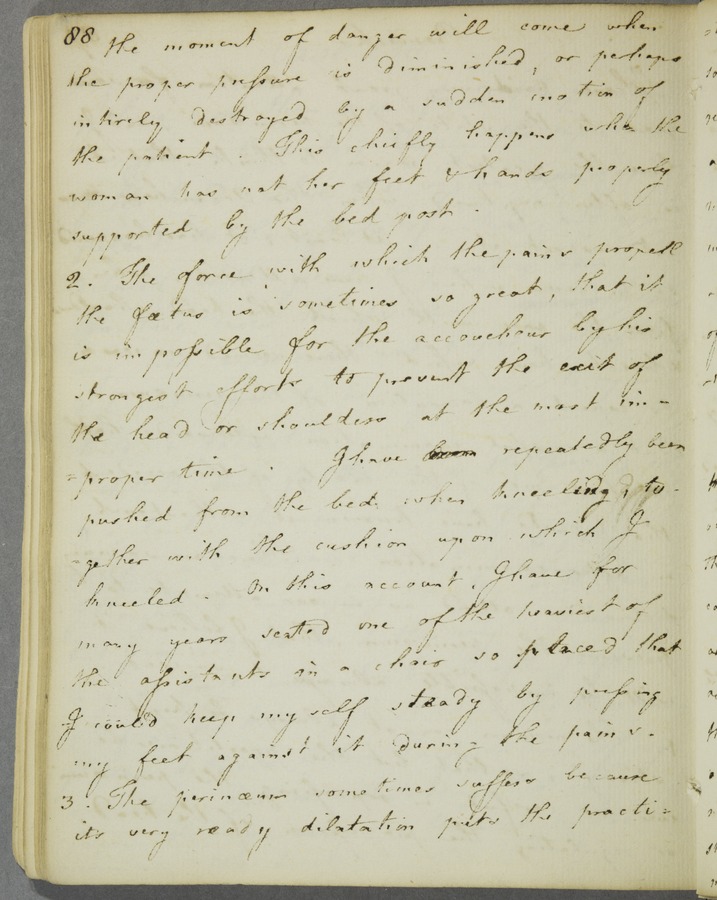 88
the moment of danger will come when
the proper pressure is diminished, or perhaps
intirely destroyed by a sudden motion of
the patient. This chiefly happens when the
woman has not her feet & hands properly
supported by the bed post.
2. The force with which the pains propell
the fœtus is sometimes so great, that it
is impossible for the accoucheur by his
strongest efforts to prevent the exit of
the head or shoulders at the most im=
=proper time. I have repeatedly been
pushed from the bed when kneeling, to-
=gether with the cushion upon which I
kneeled. On this account, I have for
many years seated one of the heaviest of
the assistants in a chair so placed that
I could keep myself steady by pressing
my feet against it during the pains.
3. The perinæum sometimes suffers because
its very ready dilatation puts the practi=